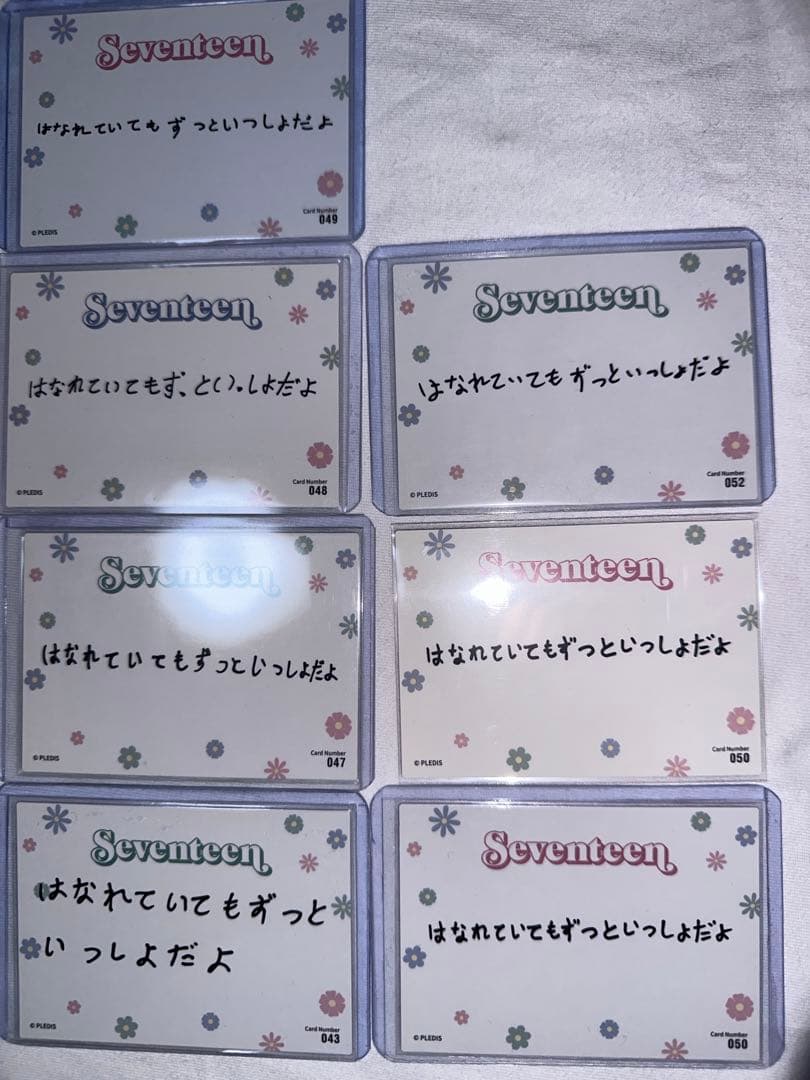 Seventeen
はなれていてもずっといっしょだよ
Card Number
049
© PLEDIS
Seventeen
はなれていてもず、とい。しよだよ
Card Number
048
© PLEDIS
Seventeen
はなれていてもずっといっしょだよ
Card Number
052
© PLEDIS
Seventeen
はなれていてもずっといっしょだよ
Card Number
047
© PLEDIS
Seventeen
はなれていてもずっといっしょだよ
Card Number
050
© PLEDIS
Seventeen
はなれていてもずっと
いっしょだよ
Card Number
043
© PLEDIS
Seventeen
はなれていてもずっといっしょだよ
Card Number
050
© PLEDIS